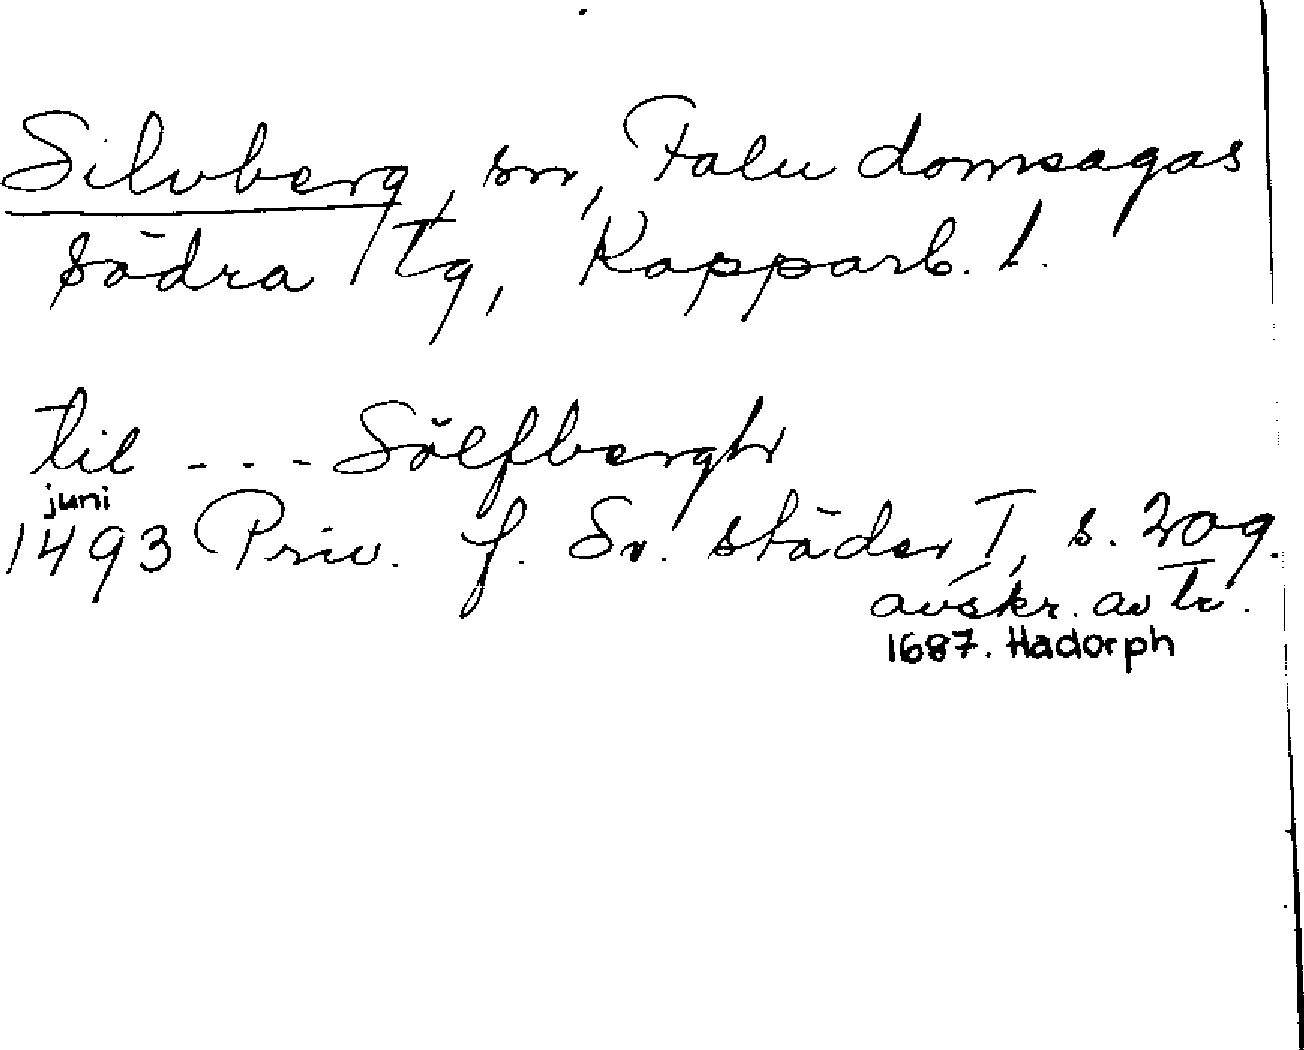 Silvberg, sn, Falu domsagas
södra tg, Kopparb. l.
til --- Sölfbergh
juni
1493 Priv. f. Sv. städer I, s. 209.
avskr. av tr.
1687. Hadorph